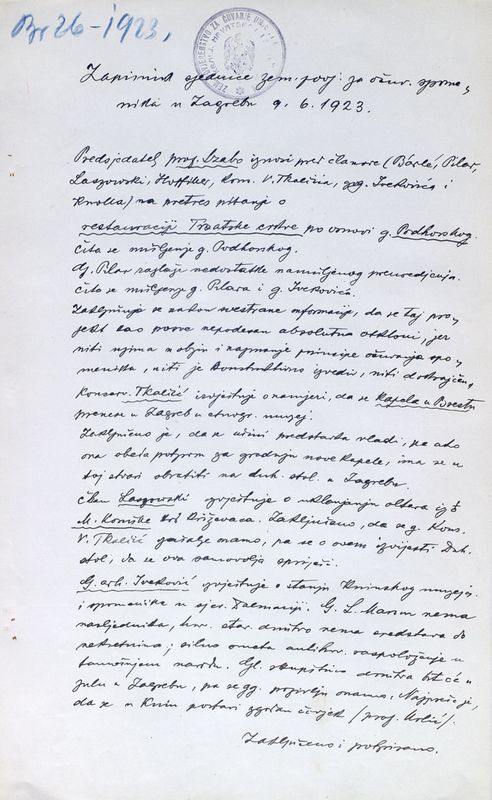 Br 26-1923,
Zapisnik sjednice zem. povj. za očuv. spome-
nika u Zagrebu 9. 6. 1923.
Predsjedatelj prof. Szabo iznosi pred članove (Barlè, Pilar,
Laszowski, Hoffiller, kons. V. Tkalčića, Ivekovića i
Knolla) na pretres pitanje o
restauraciji Trsatske crkve po osnovi g. Podhorskog.
Čita se mišljenje g. Podhorskog.
Pilar razlaže nedostatke namišljenog preuredjenja.
Čita se mišljenje g. Pilara i g. Ivekovića.
Zaključuje se nakon svestrane informacije, da se taj pro-
jekt kao posve nepodesan absolutno otkloni, jer
niti uzima u obzir i najmanje principe očuvanja spo-
menika, niti je konstruktivno izvediv, niti dotjeran.
Konserv. Tkalčić izvješćuje o namjeri, da se kapela u Brestu
prenese u Zagreb u etnogr. muzej.
Zaključeno je, da se učini predstavka vladi, pa ako
ona obeća potporu za gradnju nove kapele, ima se u
toj stvari obratiti na duh. stol. u Zagrebu.
Član Laszowski izvješćuje o uklanjanju oltara iz
M. Koruške kod Križevaca. Zaključeno, da se g. kons.
V. Tkalčić pošalje onamo, pa se o svem izvijesti Duh.
stol, da se ova samovolja spriječi.
G. arh. Iveković izvješćuje o stanju Kninskog muzeja
i spomenika u sjev. Dalmaciji. G. L. Marun nema
nasljednika, hrv. star. društvo nema sredstava
nekretnina; silno omata antihrv. raspoloženje u
tamošnjem narodu. Gl. skupština društva bit će u
julu u Zagrebu, pa se gg. pozivlju onamo. Najpreče je,
da se u Knin postavi zgodan čovjek (prof. Urlić).
Zaključeno i potpisano.